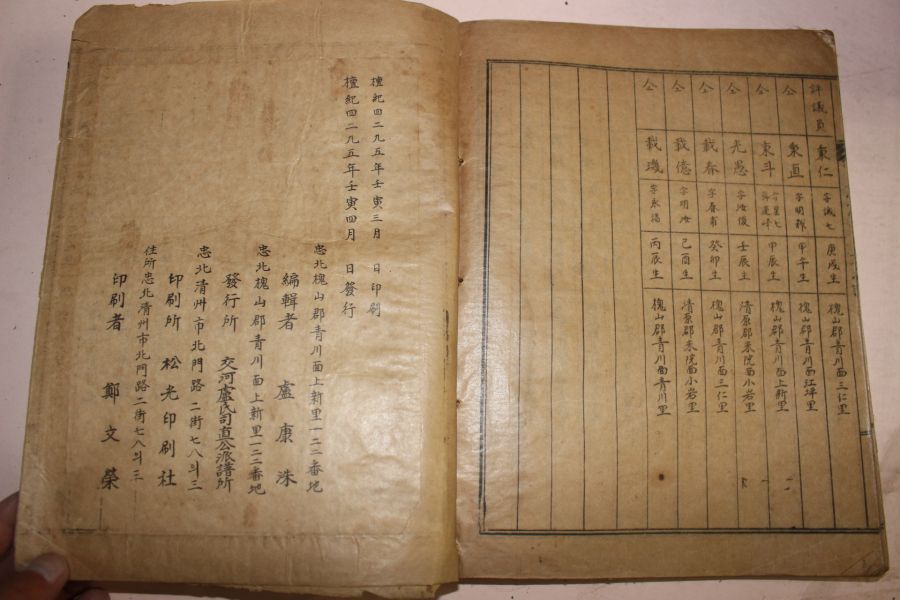 評議員 東仁 字誠七 庚戌生 槐山郡青川面三仁里
仝 東直 字明 甲午生 槐山郡青川面江坪里
仝 東斗 字星七 甲辰生 槐山郡青川面上新里
仝 光愚 字汝俊 壬辰生 清原郡米院面小岩里
仝 載春 字春甫 癸卯生 槐山郡青川面三仁里
仝 載億 字明汝 己酉生 清原郡米院面小岩里
仝 載璣 丙辰生 槐山郡青川面青川里
檀紀四二九五年壬寅三月 日印刷
檀紀四二九五年壬寅四月 日發行
忠北槐山郡青川面上新里一二二番地
編輯者 盧康洙
忠北槐山郡青川面上新里一二二番地
發行所 交河盧氏司直公派譜所
忠北清州市北門路二街七八斗三
印刷所 松光印刷社
住所忠北清州市北門路二街七八斗三
印刷者 鄭文榮